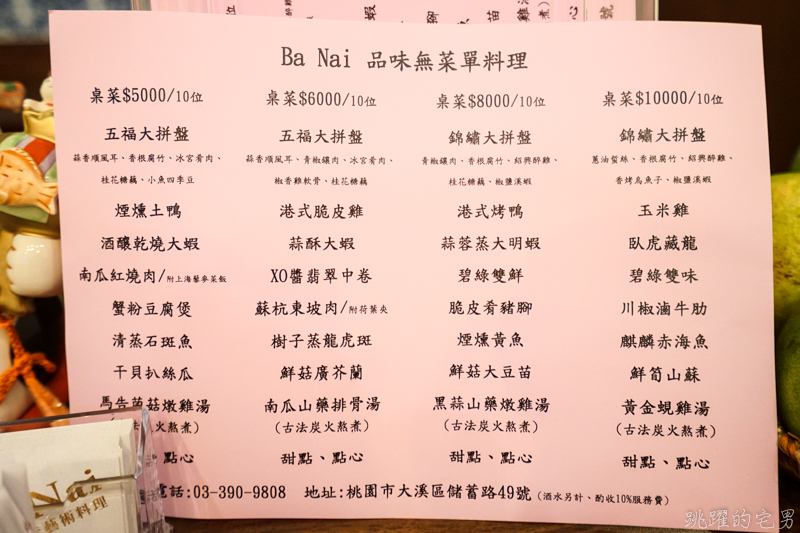 Ba Nai 品味無菜單料理
桌菜$5000/10位
五福大拼盤
蒜香順風耳、香根腐竹、冰宮肴肉、
桂花糖藕、小魚四季豆
煙燻土鴨
酒釀乾燒大蝦
南瓜紅燒肉/附上海藜麥菜飯
蟹粉豆腐煲
清蒸石斑魚
干貝扒絲瓜
馬告菌菇燉雞湯
法炭火熬煮)
點心
桌菜$6000/10位
五福大拼盤
蒜香順風耳、青椒鑲肉、冰宮肴肉、
椒香雞軟骨、桂花糖藕
港式脆皮雞
蒜酥大蝦
XO醬翡翠中卷
蘇杭東坡肉/附荷葉夾
樹子蒸龍虎斑
鮮菇廣芥蘭
南瓜山藥排骨湯
(古法炭火熬煮)
甜點、點心
桌菜$8000/10位
錦繡大拼盤
青椒鑲肉、香根腐竹、紹興醉雞、
桂花糖藕、椒鹽溪蝦
港式烤鴨
蒜蓉蒸大明蝦
碧綠雙鮮
脆皮肴豬腳
煙燻黃魚
鮮菇大豆苗
黑蒜山藥燉雞湯
(古法炭火熬煮)
甜點、點心
桌菜$10000/10位
錦繡大拼盤
蔥油蜇絲、香根腐竹、紹興醉雞、
香烤烏魚子、椒鹽溪蝦
玉米雞
臥虎藏龍
碧綠雙味
川椒滷牛肋
麒麟赤海魚
鮮筍山蘇
黃金蜆雞湯
(古法炭火熬煮)
甜點、點心
電話:03-390-9808 地址:桃園市大溪區儲蓄路49號(酒水另計、酌收10%服務費)
Nai
藝術料理
跳躍的宅男